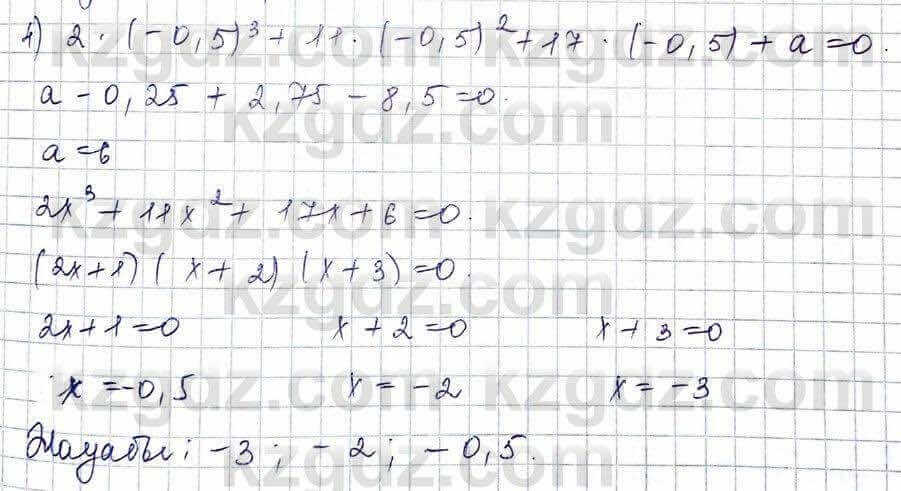 4) 2 · (-0,5)³ + 11 · (-0,5)² + 17 · (-0,5) + a = 0.
a - 0,25 + 2,75 - 8,5 = 0.
a = 6
2x³ + 11x² + 17x + 6 = 0.
(2x+1) (x+2) (x+3) = 0.
2x+1=0 x+2=0 x+3=0
x = -0,5 x = -2 x = -3
Жауабы: -3; -2; -0,5.
kzgdz.com kzgdz.com
kzgdz.com
kzgdz.com kzgdz.com
kzgdz.com
kzgdz.com kzgdz.com
kzgdz.com